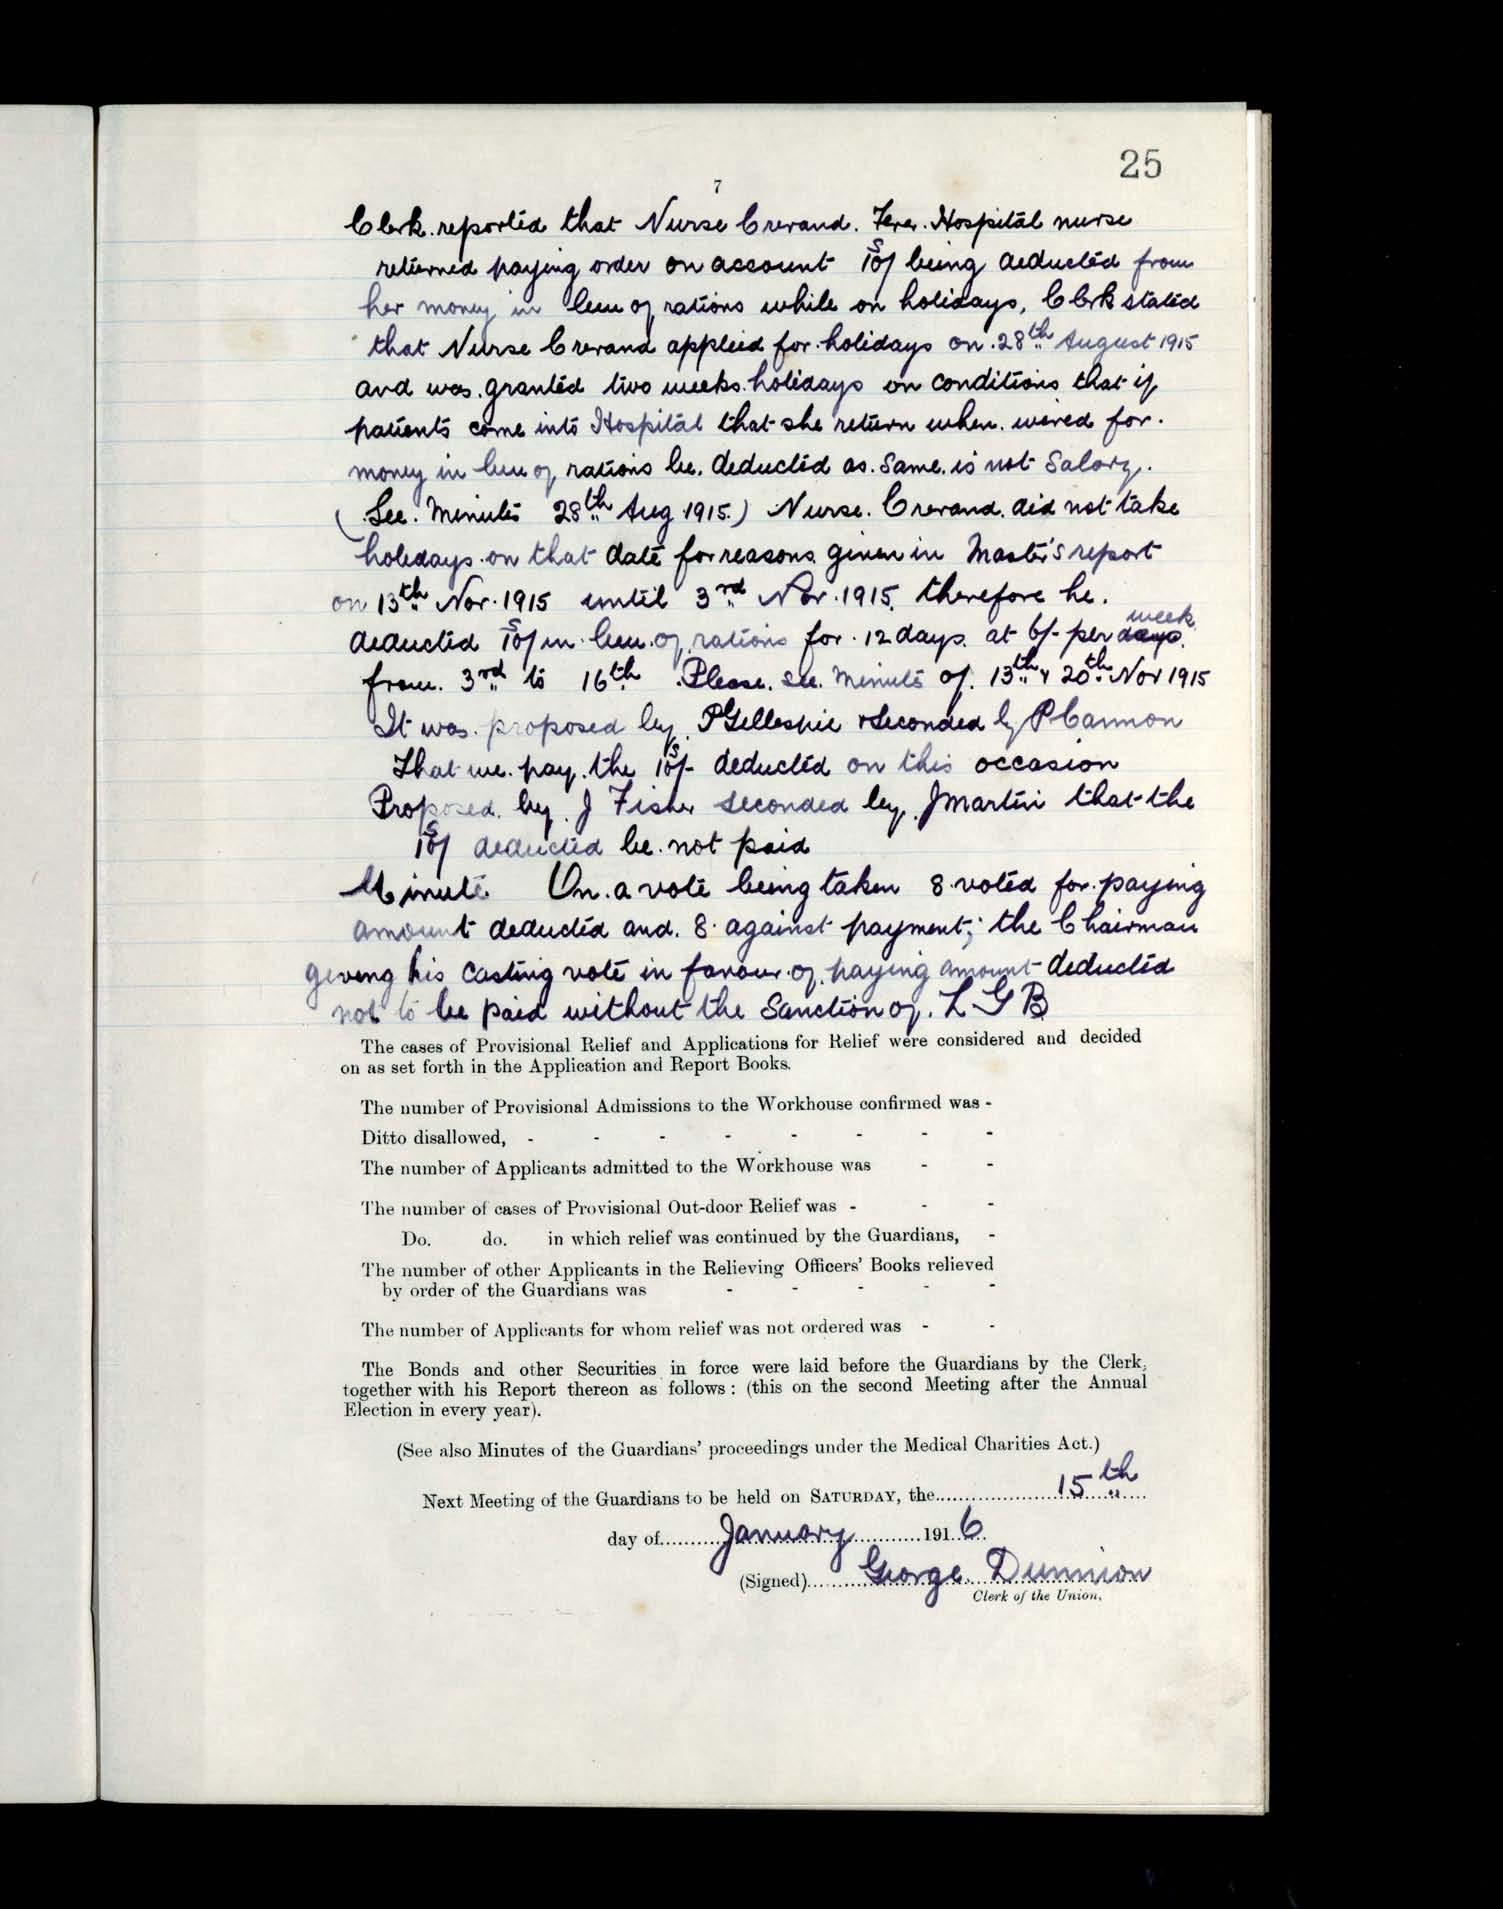 25
7
Clerk reported that Nurse Crerand. Fever Hospital nurse
returned paying order on account 10s/ being deducted from
her money in lieu of rations while on holidays, Clerk stated
that Nurse Crerand applied for holidays on 28th August 1915
and was granted two weeks holidays on conditions that if
patients come into Hospital that she return when wired for.
money in lieu of rations be deducted as same is not Salary.
(See Minutes 28th Aug 1915.) Nurse Crerand did not take
holidays on that date for reasons given in Master's report
on 13th Nov. 1915 until 3rd Nov. 1915. therefore he.
deducted 10s/ in lieu of rations for 12 days at 6/- per days week
from 3rd to 16th Please see minutes of 13th & 20th Nov 1915
It was proposed by P Gillespie & Seconded by P Cannon
That we pay the 10s/- deducted on this occasion
Proposed by J Fisher seconded by J Martin that the
10s/ deducted be not paid
Minute. On a vote being taken 8 voted for paying
amount deducted and 8 against payment; the Chairman
giving his casting vote in favour of paying amount deducted
not to be paid without the Sanction of L G B
The cases of Provisional Relief and Applications for Relief were considered and decided
on as set forth in the Application and Report Books.
The number of Provisional Admissions to the Workhouse confirmed was -
Ditto disallowed, - - - - - - - -
The number of Applicants admitted to the Workhouse was - -
The number of cases of Provisional Out-door Relief was - - -
Do. do. in which relief was continued by the Guardians, -
The number of other Applicants in the Relieving Officers' Books relieved
by order of the Guardians was - - - - -
The number of Applicants for whom relief was not ordered was - -
The Bonds and other Securities in force were laid before the Guardians by the Clerk,
together with his Report thereon as follows : (this on the second Meeting after the Annual
Election in every year).
(See also Minutes of the Guardians' proceedings under the Medical Charities Act.)
Next Meeting of the Guardians to be held on SATURDAY, the 15th
day of January 1916.
(Signed) George Dunnion
Clerk of the Union.